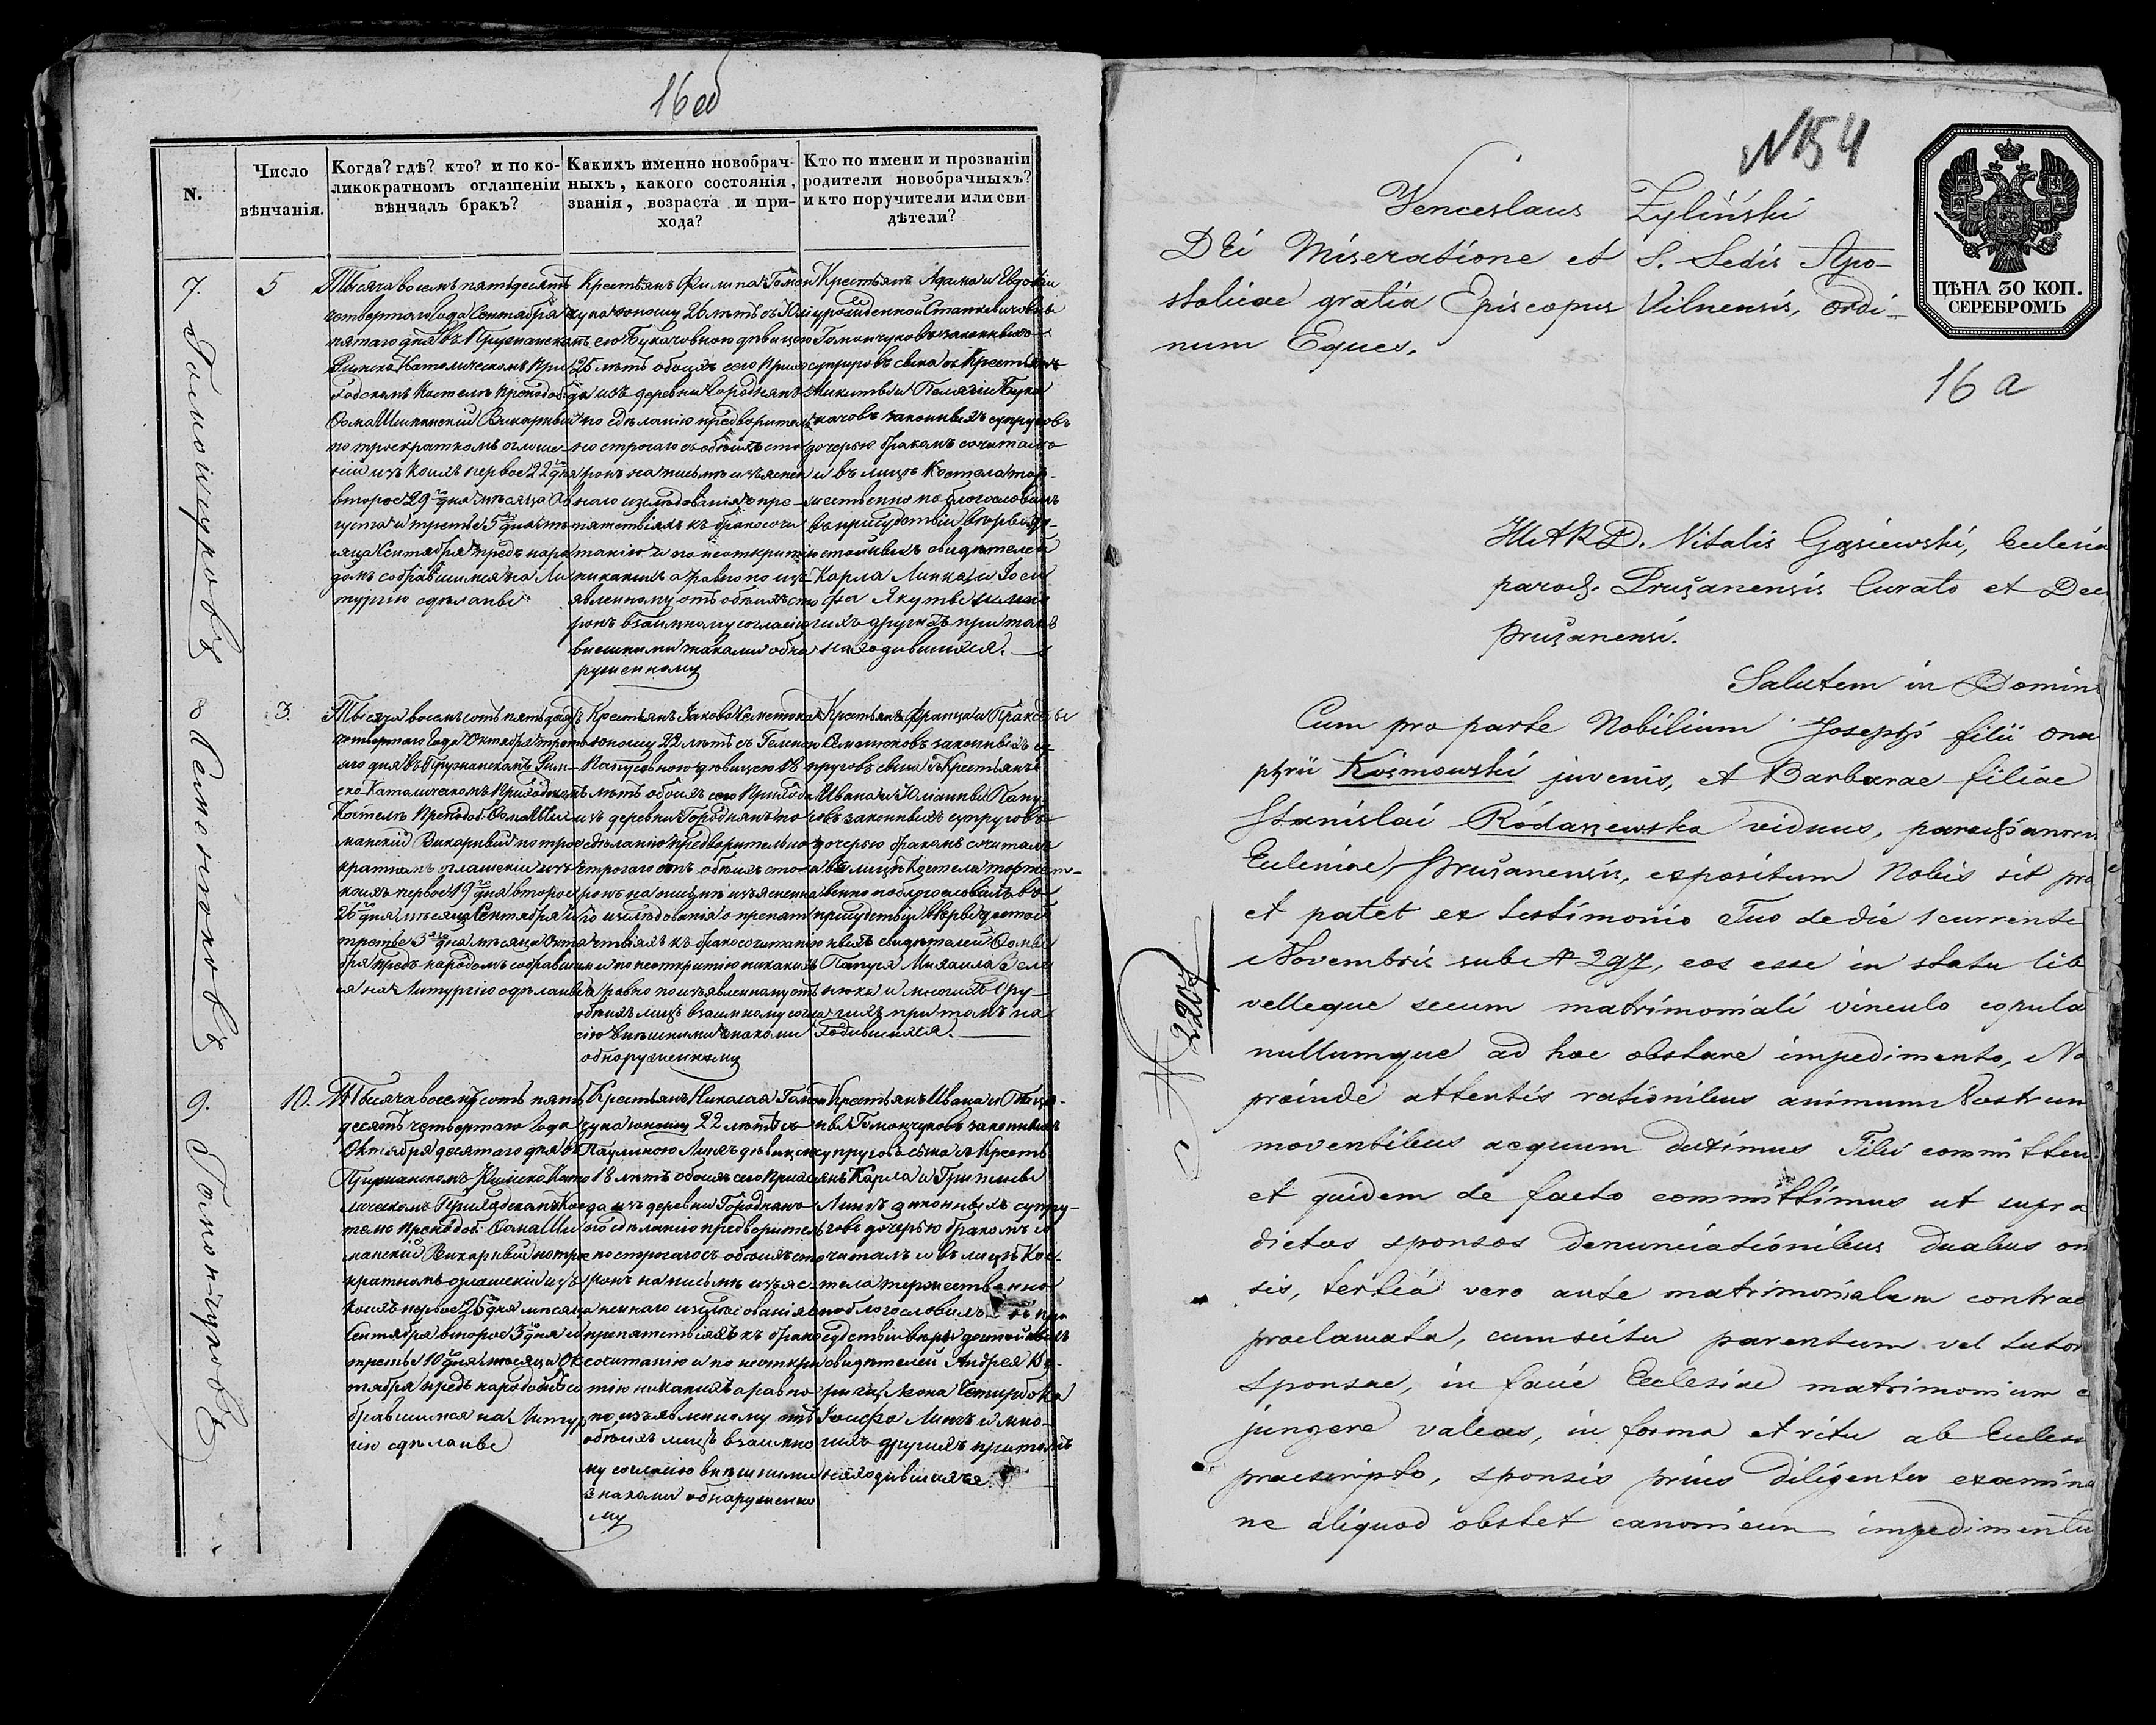 16 об
N.
Число
вѣнчанія.
Когда? гдѣ? кто? и по ко-
ликократномъ оглашеніи
вѣнчалъ бракъ?
Какихъ именно новобрач-
ныхъ, какого состоянія,
званія, возраста и при-
хода?
Кто по имени и прозваніи
родители новобрачныхъ?
и кто поручители или сви-
дѣтели?
7. Гомончуковъ
5
Тысяча восемъ пятьдесятъ
четвертаго Года Сентября
пятаго дня въ Пружанскомъ
Римско Католическомъ При-
ходскомъ Костелѣ Преподоб:
Ѳома Шиманскій Викарный
по троекратномъ оглаше-
ніи изъ коихъ первое 22го дня
второе 29го дня мѣсяца Ав
густа и третье 5го дня мѣ
сяца Сентября предъ наро
домъ собравшимся на Ли
тургію сдѣланы
Крестьянъ Филипа Гомон
чука юношу 26 лѣтъ съ Юлі
ею Букачовною дѣвицею
25 лѣтъ обоихъ сего Прихо
да изъ деревни Городнянъ
по сдѣланію предваритель
но строгаго съ обоихъ сто
ронъ на письмѣ изъяснен
наго изслѣдованія о пре-
пятствіяхъ къ бракосоче
танію и по неоткрытію
никакихъ а равно по изъ
явленному отъ обоихъ сто
ронъ взаимному согласію
внешними знаками обна
руженному
Крестьянъ Адама и Евдокіи
урожденной Станкевичовнъ
Гомончуковъ законныхъ
супруговъ сына съ Крестьянъ
Микиты и Пелягіи Бука
човъ законныхъ супруговъ
дочерью бракомъ сочиталъ
и въ лицѣ Костела тор-
жественно поблогословилъ
въ присудствіи вѣры до-
стойныхъ свидѣтелей
Карла Линка и Іоси
фа Якуты и мно
гихъ другихъ при томъ
находившихся.
8 Семенюковъ
3.
Тысяча восемъ сотъ пятьдесятъ
четвертаго Года Октября треть
яго дня въ Пружанскомъ Рим-
ско Католическомъ Приходскомъ
Костелѣ Преподоб: Ѳома Ши
манскій Викарный по трое
кратномъ оглашеніи изъ
коихъ первое 19го дня второе
26го дня мѣсяца Сентября и
третье 3го дня мѣсяца Октя
бря предъ народомъ собравшим
ся на Литургію сдѣланы
Крестьянъ Іакова Семенюка
юношу 22 лѣтъ съ Геленою
Папусовною дѣвицею 18
лѣтъ обоихъ сего Прихода
изъ деревни Городнянъ по
сдѣланію предварительно
строгаго отъ обоихъ сто
ронъ на письмѣ изъясненна
го изслѣдованія о препят
ствіяхъ къ бракосочетанію
и по неоткрытію никакихъ
а равно по изъявленному отъ
обоихъ лицъ взаимному согла
сію внешними знаками
обнаруженному
Крестьянъ Франца и Праксэды
Семенюковъ законныхъ су
пруговъ сына съ Крестьянъ
Ивана и Юліанны Папу
совъ законныхъ супруговъ
дочерью бракомъ сочиталъ
и въ лицѣ Костела торжест-
венно поблогословилъ въ
присудствіи вѣры достой
ныхъ свидѣтелей Ѳомы
Папуся Михаила Семе
нюка и многихъ дру-
гихъ при томъ на
ходившихся.
9. Гомончуковъ
10.
Тысяча восемъ сотъ пять
десятъ четвертаго Года
Октября десятаго дня въ
Пружанскомъ Римско Като
лическомъ Приходскомъ Кос
телѣ Преподоб: Ѳома Ши
манскій Викарный по трое
кратномъ оглашеніи изъ
коихъ первое 26го дня мѣсяца
Сентября второе 3го дня и
третье 10го дня мѣсяца Ок
тября предъ народомъ со
бравшимся на Литур
гію сдѣланы
Крестьянъ Николая Гомон
чука юношу 22 лѣтъ съ
Паулиною Линкъ дѣвицею
18 лѣтъ обоихъ сего Прихо
да изъ деревни Городнянъ
по сдѣланію предваритель
но строгаго съ обоихъ сто
ронъ на письмѣ изъяс
неннаго изслѣдованія о
препятствіяхъ къ брако
сочитанію и по неоткры
тію никакихъ а равно
по изъявленному отъ
обоихъ лицъ взаимно
му согласію внешними
знаками обнаруженно
му
Крестьянъ Ивана и
ны Гомончуковъ законныхъ
супруговъ сына съ Кресть
янъ Карла и
Линковъ законныхъ супру-
говъ дочерью бракомъ со
читалъ и въ лицѣ Кос-
тела торжественно
поблогословилъ въ при
судствіи вѣры достойныхъ
свидѣтелей Андрея
Леона
Іосифа Линкъ и мно-
гихъ другихъ при томъ
находившихся.
N154
ЦѢНА 30 КОП.
СЕРЕБРОМЪ
16 a
Venceslaus Żyliński
DEi Miseratione et S. Sedis Apo-
stolicae gratia Episcopus Vilnensis, Ordi-
num Eques.
D. Vitalis Gąsiewski, Ecclesia
paroch. Prużanensis Curato et Dec
Prużanensi.
Salutem in Domin
Cum pro parte Nobilium Josephi filii Onu
phrii Kosmowski juvenis, et Barbarae filiae
Stanislai Rodaszewska viduus, parochianorum
Ecclesiae Prużanensis, expositum Nobis sit pro
et patet ex testimonio Tuo de die 1 currente
Novembris sub N 297, eos esse in statu lib
velleque secum matrimoniali vinculo copula
nullumque ad hoc obstare impedimento, No
proinde attentis rationibus animum Nostrum
moventibus aequum duximus Tibi committen
et quidem de facto committimus ut supra
dictos sponsos denunciationibus duabus om
sis, tertiâ vero ante matrimonialem contrac
proclamata, cum scitu parentum vel tutor
sponsae, in facie Ecclesiae matrimonium c
jungere valeas, in forma et ritu ab Ecclesi
praescripto, sponsis prius diligenter examina
ne aliquod obstet canonicum impedimentu
N 2207